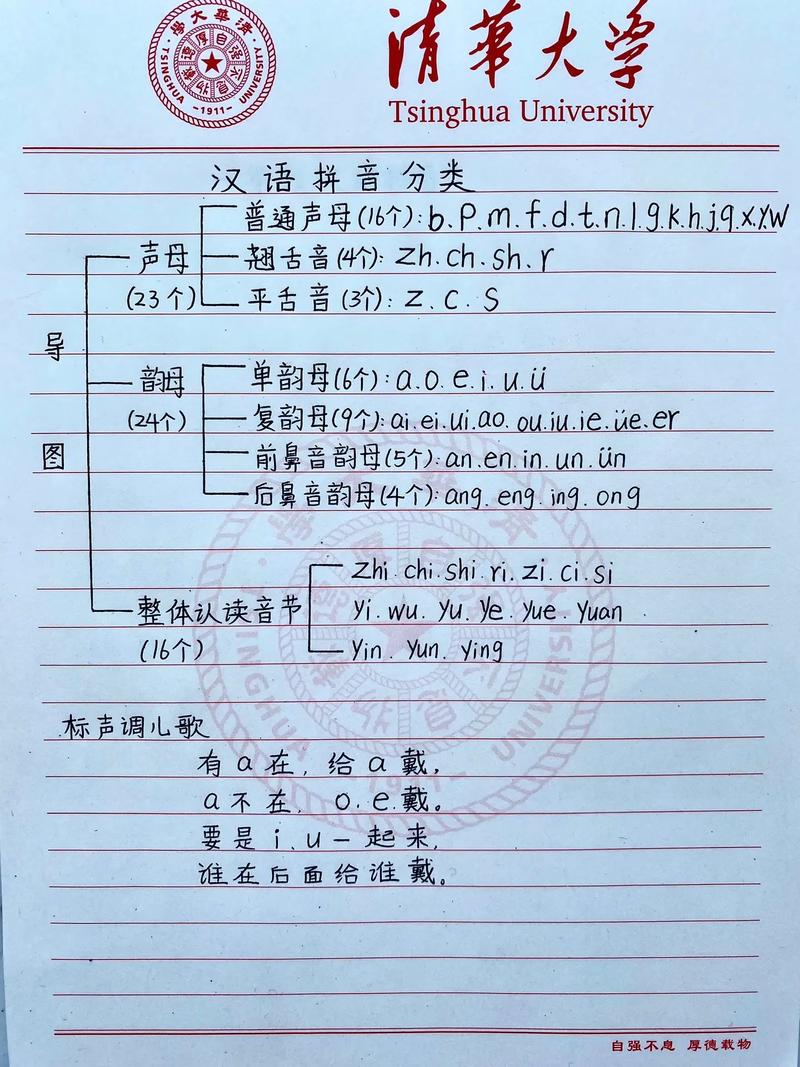 學大華清
·TSINGHUA UNIVERSITY·
自强不息
厚德載物
–1911–
清華大学
Tsinghua University
汉语拼音分类
普通声母(16个):b.p.m.f.d.t.n.l.g.k.h.j.q.x.y.w
声母
翘舌音(4个):zh.ch.sh.r
(23个)
平舌音(3个):z.c.s
导
韵母
单韵母(6个):a.o.e.i.u.ü
(24个)
复韵母(9个):ai.ei.ui.ao.ou.iu.ie.üe.er
图
前鼻音韵母(5个):an.en.in.un.ün
后鼻音韵母(4个):ang.eng.ing.ong
zhi.chi.shi.ri.zi.ci.si
整体认读音节
yi.wu.yu.ye.yue.yuan
(16个)
yin.yun.ying
标声调儿歌
有a在,给a戴,
a不在,o.e.戴。
要是i、u一起来,
谁在后面给谁戴。
學大華清
TSINGHUA UNIVERSITY
–1911–
自强不息 厚德载物